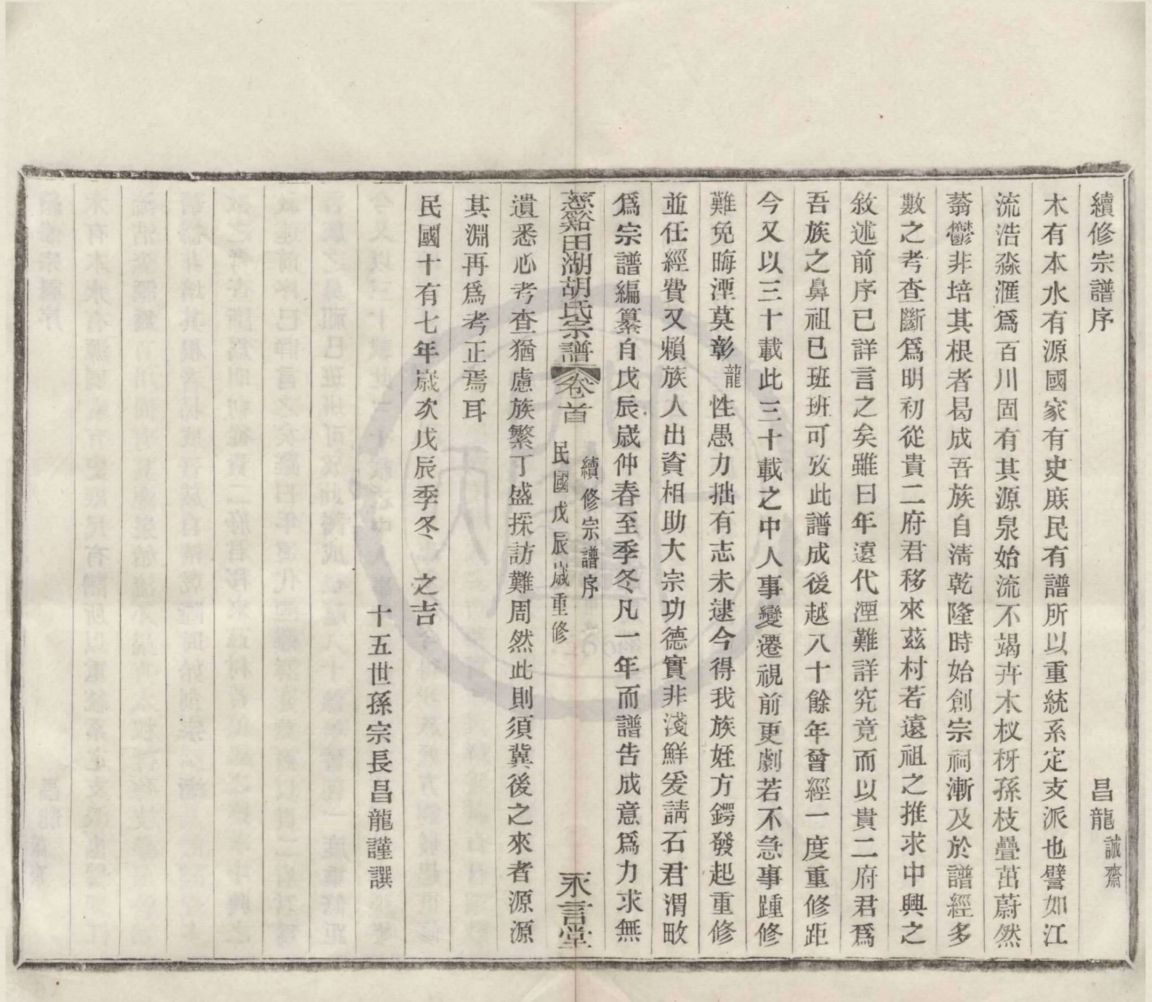 續修宗譜序
昌龍誠齋
木有本水有源國家有史庶民有譜所以重統系定支派也譬如江
流浩淼滙爲百川固有其源泉始流不竭卉木杈枒孫枝疊茁蔚然
蓊鬱非培其根者曷成吾族自清乾隆時始創宗祠漸及於譜經多
數之考查斷爲明初從貴二府君移來茲村若遠祖之推求中興之
敘述前序已詳言之矣雖曰年遠代湮難詳究竟而以貴二府君爲
吾族之鼻祖已班班可攷此譜成後越八十餘年曾經一度重修距
今又以三十載此三十載之中人事變遷視前更劇若不急事踵修
難免晦湮莫彰龍性愚力拙有志未逮今得我族姪方鍔發起重修
並任經費又賴族人出資相助大宗功德實非淺鮮爰請石君渭畋
爲宗譜編纂自戊辰歲仲春至季冬凡一年而譜告成意爲力求無
慈谿田湖胡氏宗譜 卷首
續修宗譜序
民國戊辰歲重修
永言堂
遺悉心考查猶慮族繁丁盛採訪難周然此則須冀後之來者源源
其淵再爲考正焉耳
民國十有七年歲次戊辰季冬 之吉
十五世孫宗長昌龍謹譔